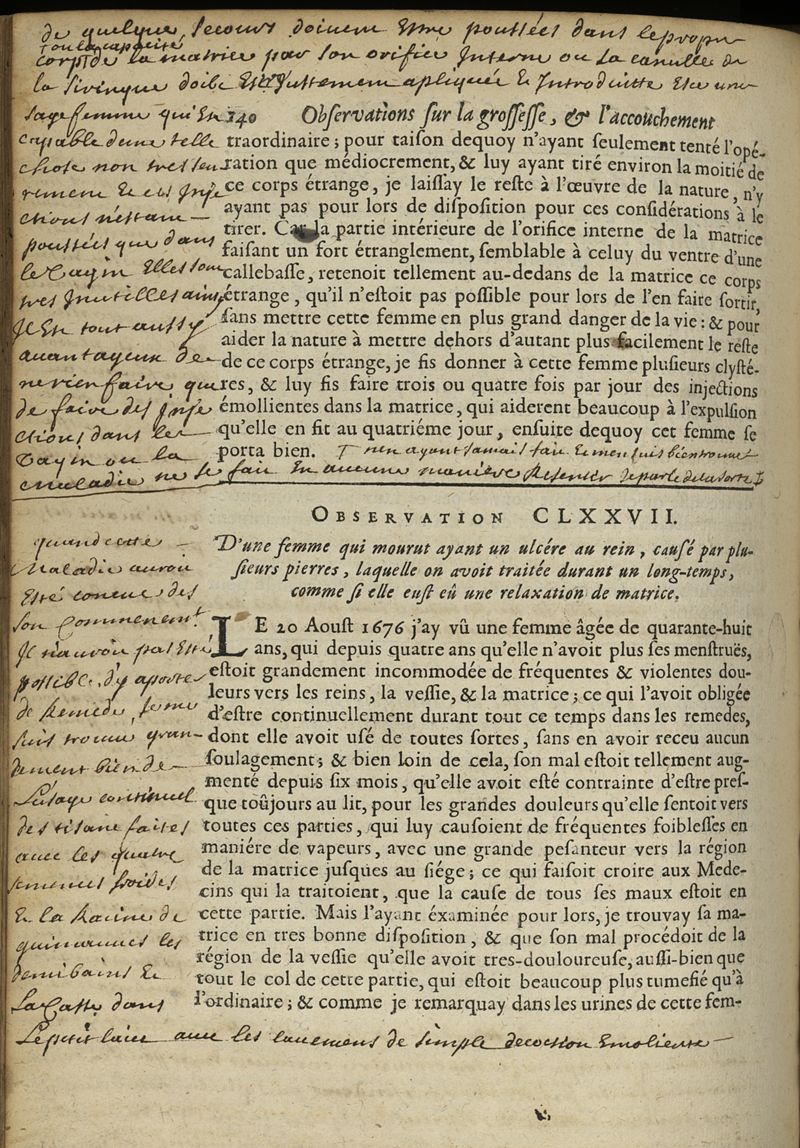 de quelque secours doivent estre poussées dans le propre
corps de la matrice par son orifice interne ou la canulle de
la siringue doibt estre justement apliquée & introduitte
sagefemme qui
240 Observations sur la grossesse, & l'accouchement
capable dune telle
chose non
traordinaire; pour taison dequoy n'ayant seulement tenté l'opé-
ration que médiocrement, & luy ayant tiré environ la moitié de
ce corps étrange, je laissay le reste à l'œuvre de la nature, n'y
ayant pas pour lors de disposition pour ces considérations à le
tirer. Car la partie intérieure de l'orifice interne de la matrice
faisant un fort étranglement, semblable à celuy du ventre d'une
callebasse, retenoit tellement au-dedans de la matrice ce corps
étrange, qu'il n'estoit pas possible pour lors de l'en faire sortir,
sans mettre cette femme en plus grand danger de la vie: & pour
aider la nature à mettre dehors d'autant plus facilement le reste
de ce corps étrange, je fis donner à cette femme plusieurs clysté-
res, & luy fis faire trois ou quatre fois par jour des injections
émollientes dans la matrice, qui aiderent beaucoup à l'expulsion
qu'elle en fit au quatriéme jour, ensuite dequoy cet femme se
porta bien.
poussées que dans
le Vagin Elles sont
tres inutilles ainsy
il Est tout aussy
avantageux de
ne rien faire que
de faire des inje
ctions dans le
Vagin ou la
OBSERVATION CLXXVII.
D'une femme qui mourut ayant un ulcére au rein, causé par plu-
sieurs pierres, laquelle on avoit traitée durant un long-temps,
comme si elle eust eû une relaxation de matrice.
LE 20 Aoust 1676 j'ay vû une femme âgée de quarante-huit
ans, qui depuis quatre ans qu'elle n'avoit plus ses menstruës,
estoit grandement incommodée de fréquentes & violentes dou-
leurs vers les reins, la vessie, & la matrice; ce qui l'avoit obligée
d'estre continuellement durant tout ce temps dans les remedes,
dont elle avoit usé de toutes sortes, sans en avoir receu aucun
soulagement; & bien loin de cela, son mal estoit tellement aug-
menté depuis six mois, qu'elle avoit esté contrainte d'estre pres-
que toûjours au lit, pour les grandes douleurs qu'elle sentoit vers
toutes ces parties, qui luy causoient de fréquentes foiblesses en
maniére de vapeurs, avec une grande pesanteur vers la région
de la matrice jusques au siége; ce qui faisoit croire aux Mede-
cins qui la traitoient, que la cause de tous ses maux estoit en
cette partie. Mais l'ayant éxaminée pour lors, je trouvay sa ma-
trice en tres bonne disposition, & que son mal procédoit de la
région de la vessie qu'elle avoit tres-douloureuse, aussi-bien que
tout le col de cette partie, qui estoit beaucoup plus tumefié qu'à
l'ordinaire; & comme je remarquay dans les urines de cette fem-
quand cette
Maladie auroit
Esté conneue des
son Commencement
il nauroit pas Esté
possible d'y aporter
de Remede, je me
suis trouvé gran-
dement bien de
Lusage continuel
des tisane faites
avec les quatre
semences froides
& la Racine de
guimauves les
demi bains &
La Casse dans
Le petit laict avec les lavemens de simple decoction Emoliente